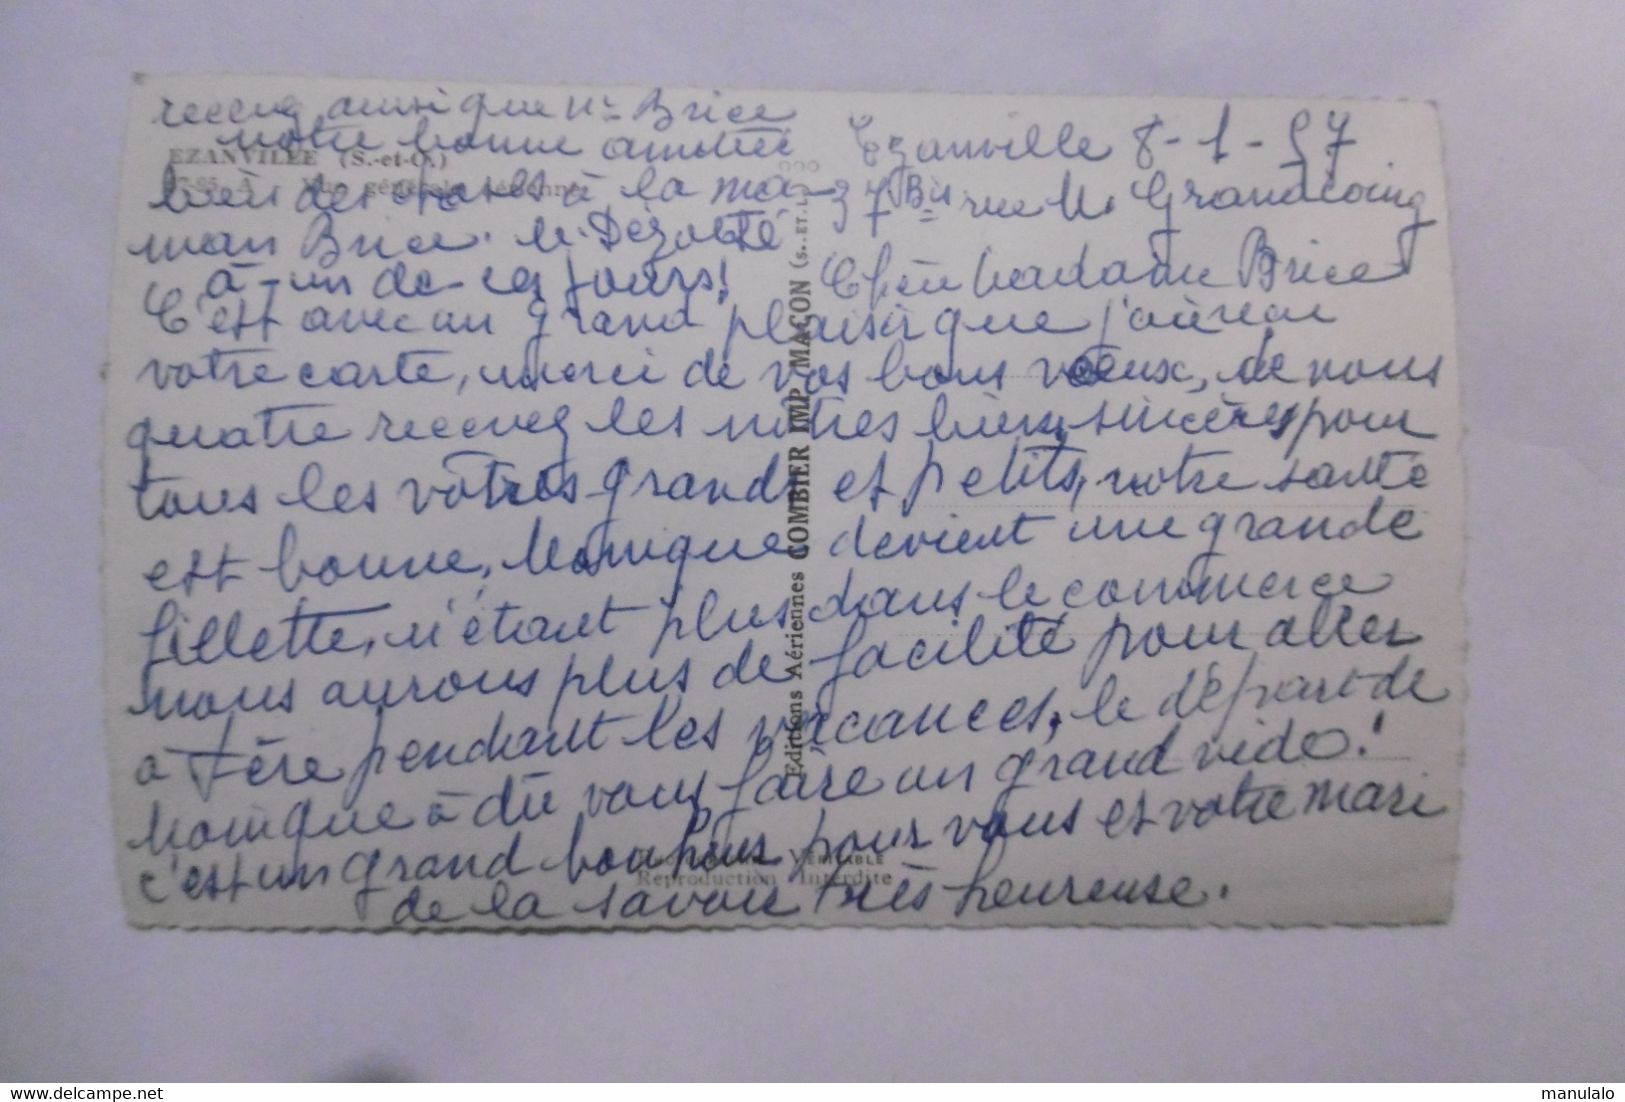 Ezanville 8-1-57
7 Bis rue M. Grandcoing
Chère Madame Brice
C'est avec un grand plaisir que j'ai reçu
votre carte, merci de vos bons vœux, de nous
quatre recevez les nôtres bien sincères pour
tous les vôtres grands et petits, notre santé
est bonne, Monique devient une grande
fillette, n'étant plus dans le commerce
nous aurons plus de facilité pour aller
à Fère pendant les vacances, le départ de
Monique à dû vous faire un grand vide!
c'est un grand bonheur pour vous et votre mari
de la savoir très heureuse.
recevez ainsi que Mr Brice
notre bonne amitié
bien des choses à la ma-
man Brice. M. Dézobté
à un de ces jours!
EZANVILLE (S.-et-O.)
Vue générale aérienne
Editions Aériennes COMBIER IMP. MACON (S.-ET-L.)
VÉRITABLE
Reproduction Interdite
manulalo